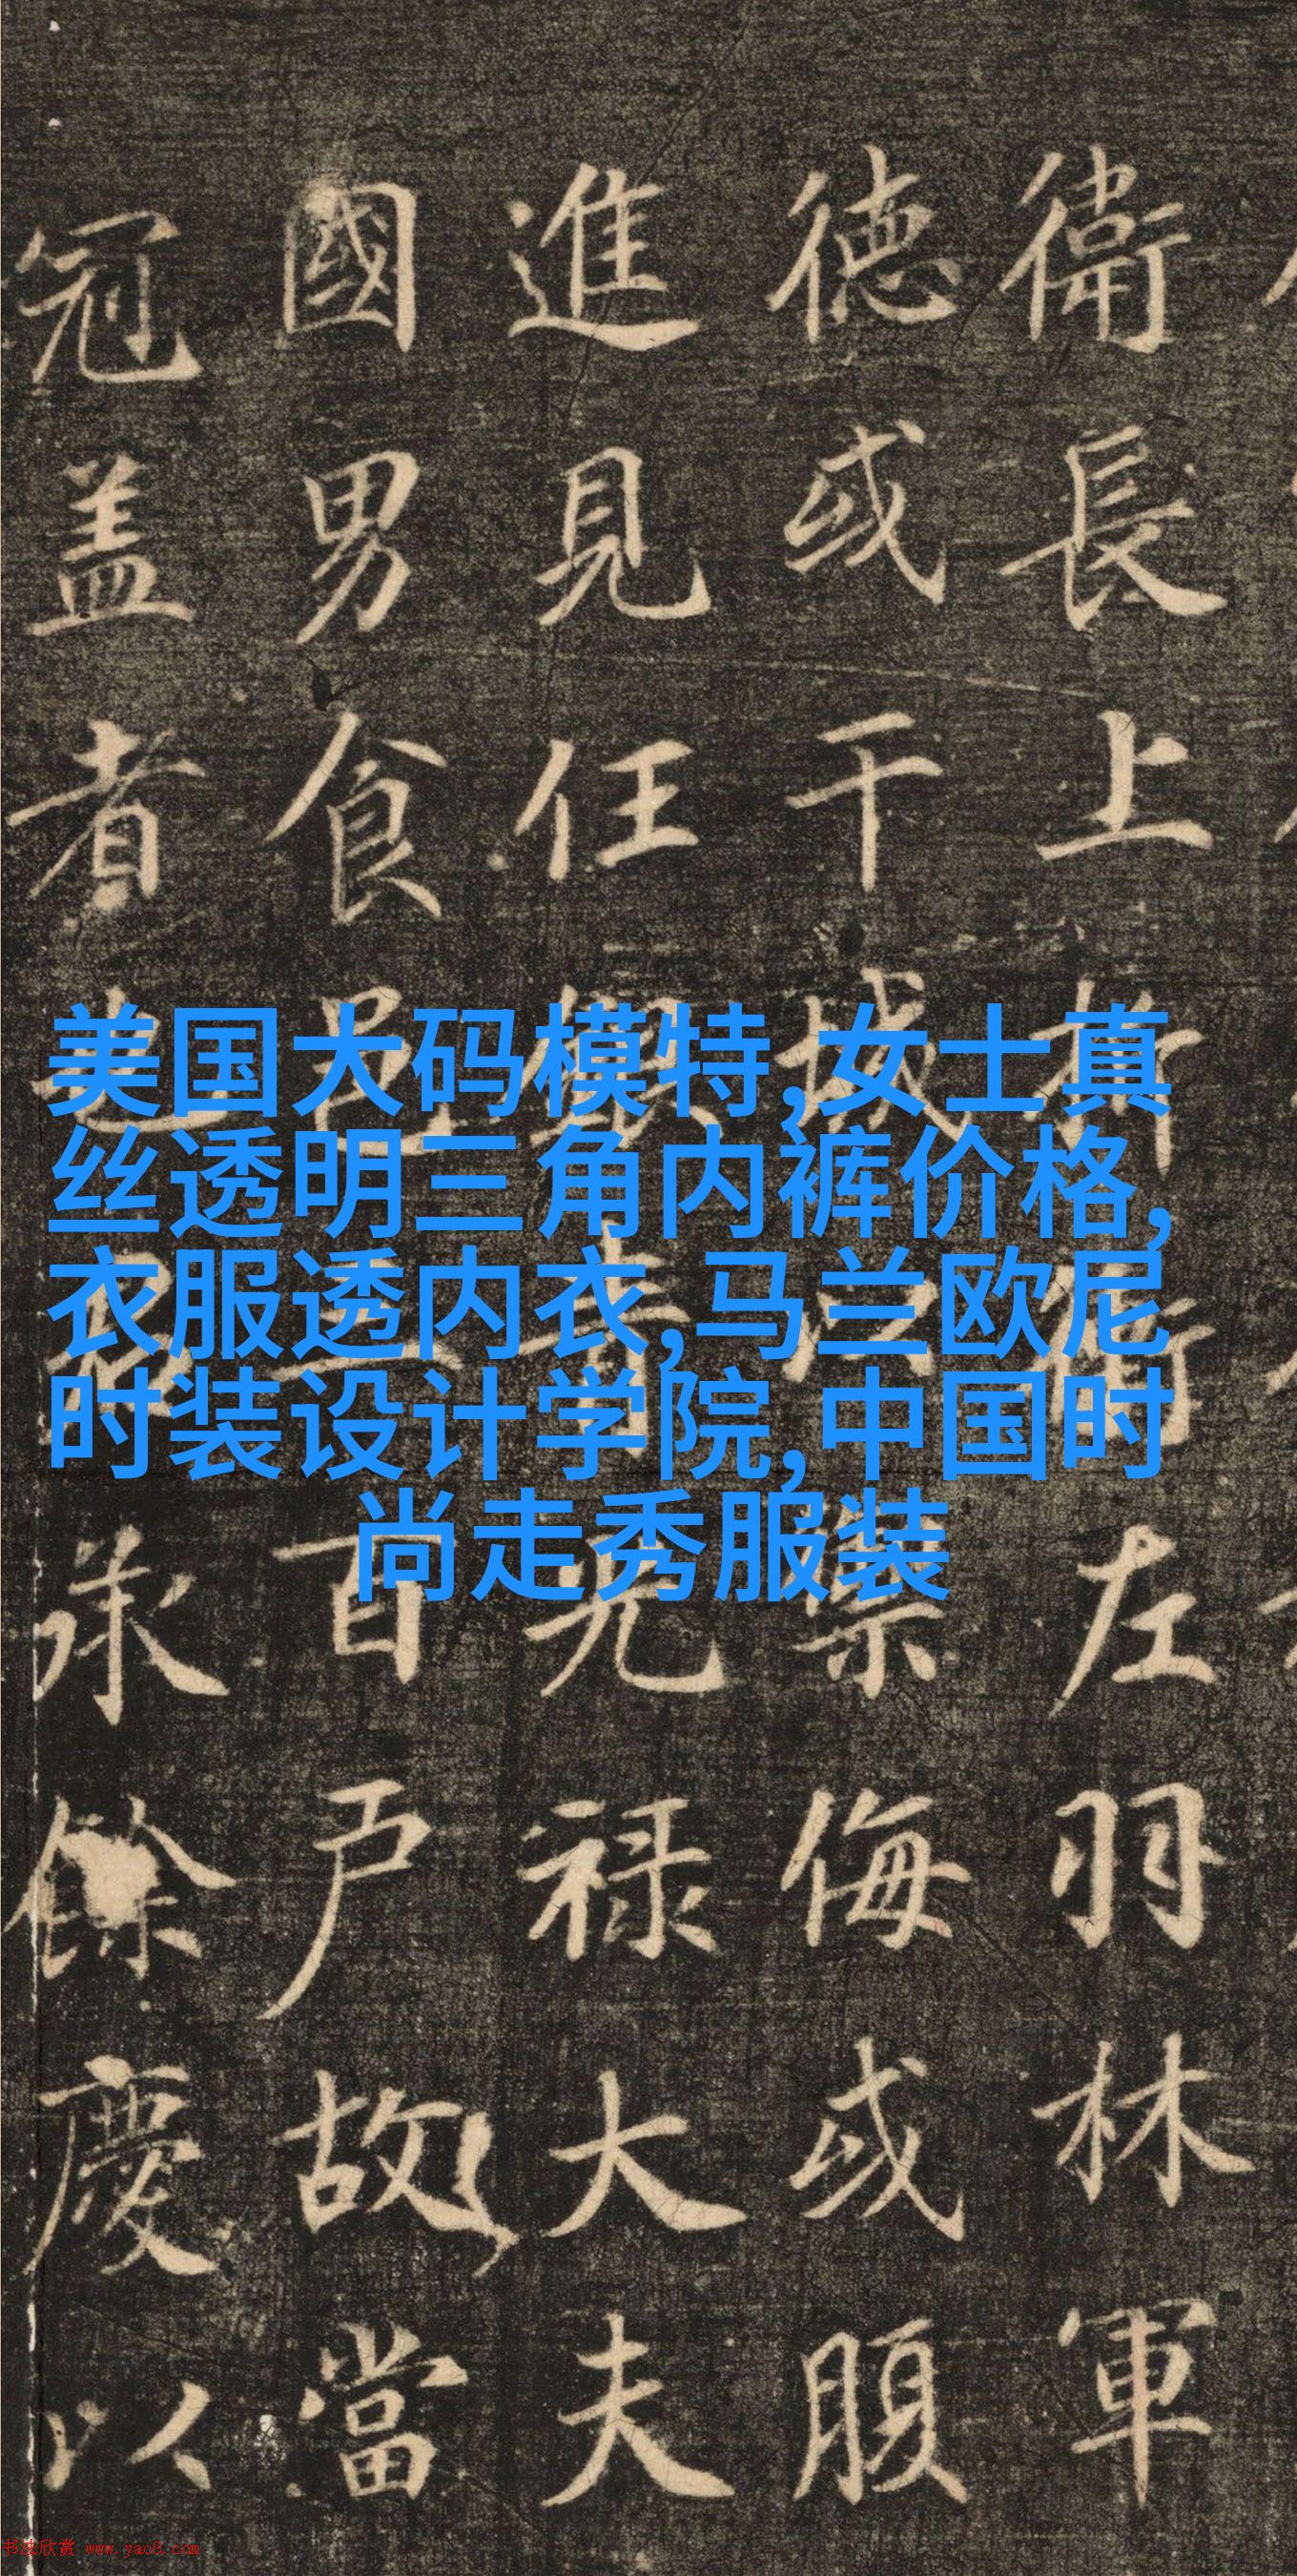 衞長上折衝左羽林軍
德或干城禦侮或腹
進見任銀青光禄大夫
國男食邑三百户故當
冠盖者也承餘慶以
美国大码模特,女士真
丝透明三角内裤价格,
衣服透内衣,马兰欧尼
时装设计学院,中国时
尚走秀服装
书法欣赏 www.yac8.com